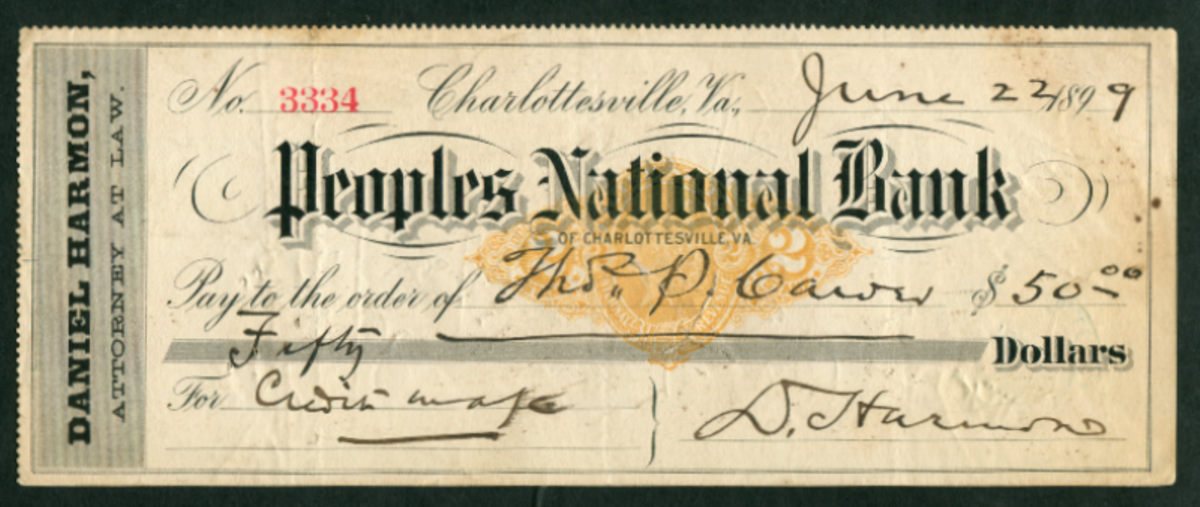 DANIEL HARMON,
ATTORNEY AT LAW.
No. 3334 Charlottesville, Va., June 22 1899
Peoples National Bank
OF CHARLOTTESVILLE VA.
2
Pay to the order of Thos. P. Carver $ 50 00
Fifty Dollars
For Credit
D. Harmon